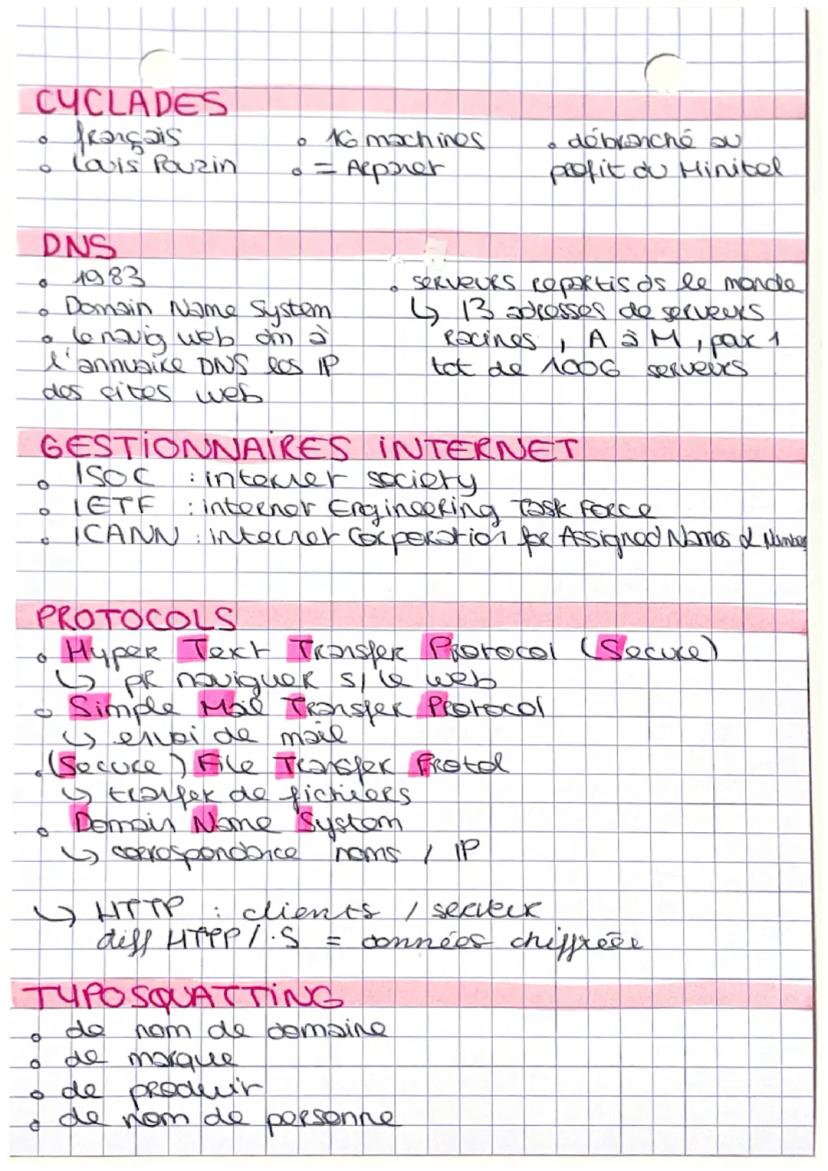 CYCLADES
• français
• Louis Pouzin
• 16 machines
• = Arpanet
• débranché au
profit du Minitel
DNS
• 1983
• Domain Name System
• le navig web dm à
l'annuaire DNS les IP
des sites web
• serveurs repartis ds le monde
↳ 13 adresses de serveurs
racines, A à M, pour 1
tot de 1006 serveurs
GESTIONNAIRES INTERNET
• ISOC : internet society
• IETF : internet Engineering Task Force
• ICANN : internet Corporation for Assigned Names & Number
PROTOCOLS
• Hyper Text Transfer Protocol (Secure)
↳ pr naviguer s/ le web
• Simple Mail Transfer Protocol
↳ envoi de mail
• (Secure) File Transfer Protol
↳ tranfer de fichiers
• Domain Name System
↳ correspondance noms / IP
↳ HTTP : clients / serveur
diff HTTP/.S = données chiffrées
TYPOSQUATTING
• de nom de domaine
• de marque
• de produit
• de nom de personne